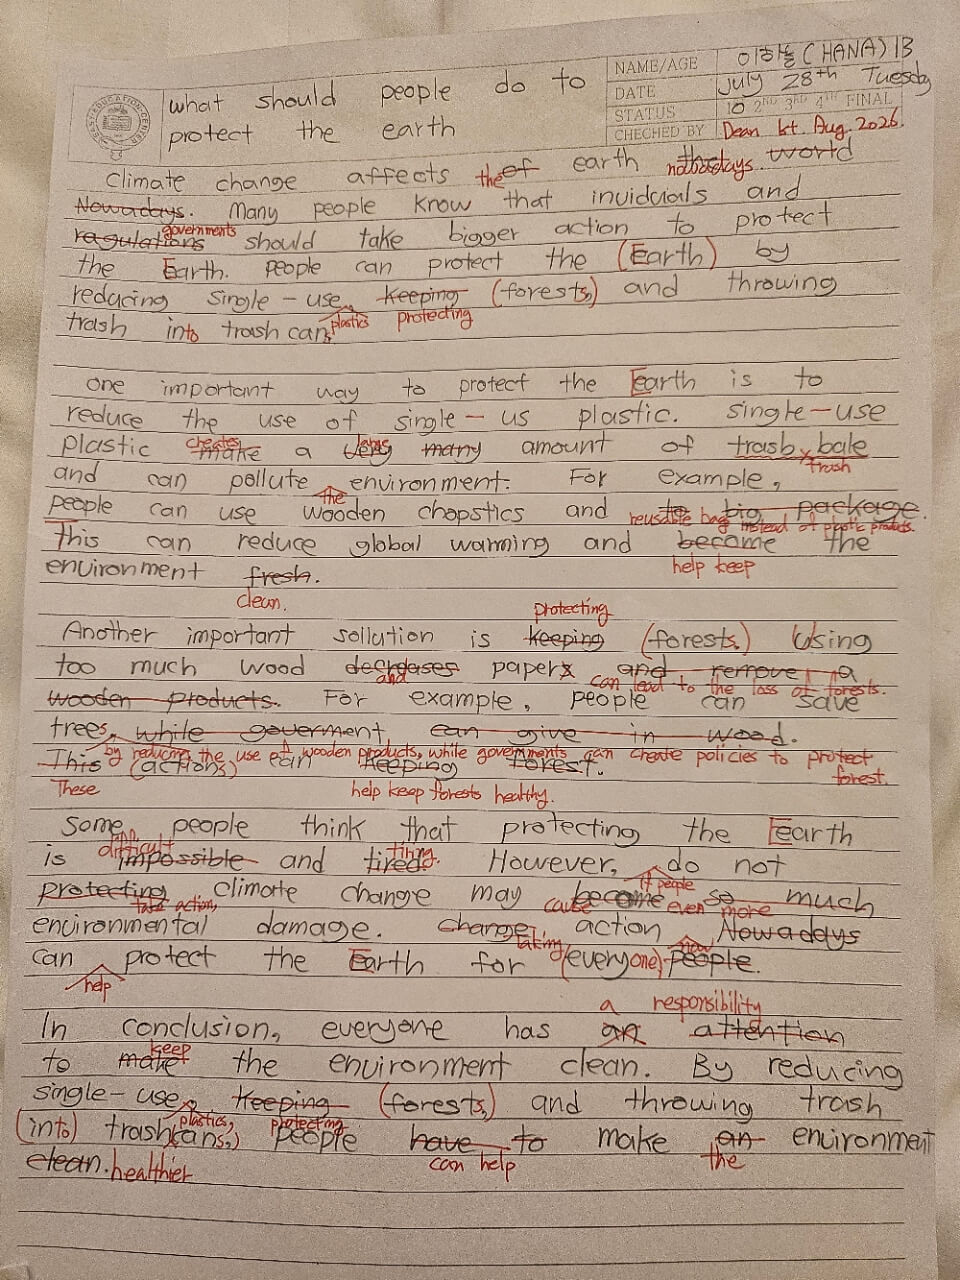 what should people do to
protect the earth
NAME/AGE 이하늘 (HANA) 13
DATE July 28th Tuesday
STATUS 2ND 3RD 4TH FINAL
CHECHED BY Dean 1st. Aug. 2026.
EAST EDUCATION CENTER
Climate change affects the of earth nowadays. world
Nowadays. Many people know that inviduials and
governments
regulations should take bigger action to protect
the Earth. people can protect the (Earth) by
reducing single-use keeping (forests,) and throwing
trash into trash cans. plastics protecting
one important way to protect the Earth is to
reduce the use of single-us plastic. single-use
creates
plastic make a many amount of trash bale
trash
and can pollute environment. For example,
the
people can use wooden chopstics and to big package.
reusable bags instead of plastic products.
This can reduce global warming and become the
help keep
environment fresh.
clean.
protecting
Another important sollution is keeping (forests.) Using
too much wood decreases paper and remove a
and can lead to the loss of forests.
wooden products. For example, people can save
trees, while goverment can give in wood.
by reducing the use of wooden products, while governments can create policies to protect
forest.
This (actions) can keeping forest.
These help keep forests healthy.
Some people think that protecting the Earth
difficult tiring.
is impossible and tired. However, do not
if people
protecting climate change may become so much
take action, cause even more
environmental damage. change action Nowadays
taking now
can protect the Earth for (everyone) people.
help
a responsibility
In conclusion, everyone has an attention
keep
to make the environment clean. By reducing
single-use, keeping (forests,) and throwing trash
plastics, protecting
(into) trash cans, people have to make an environment
can help the
clean. healthier